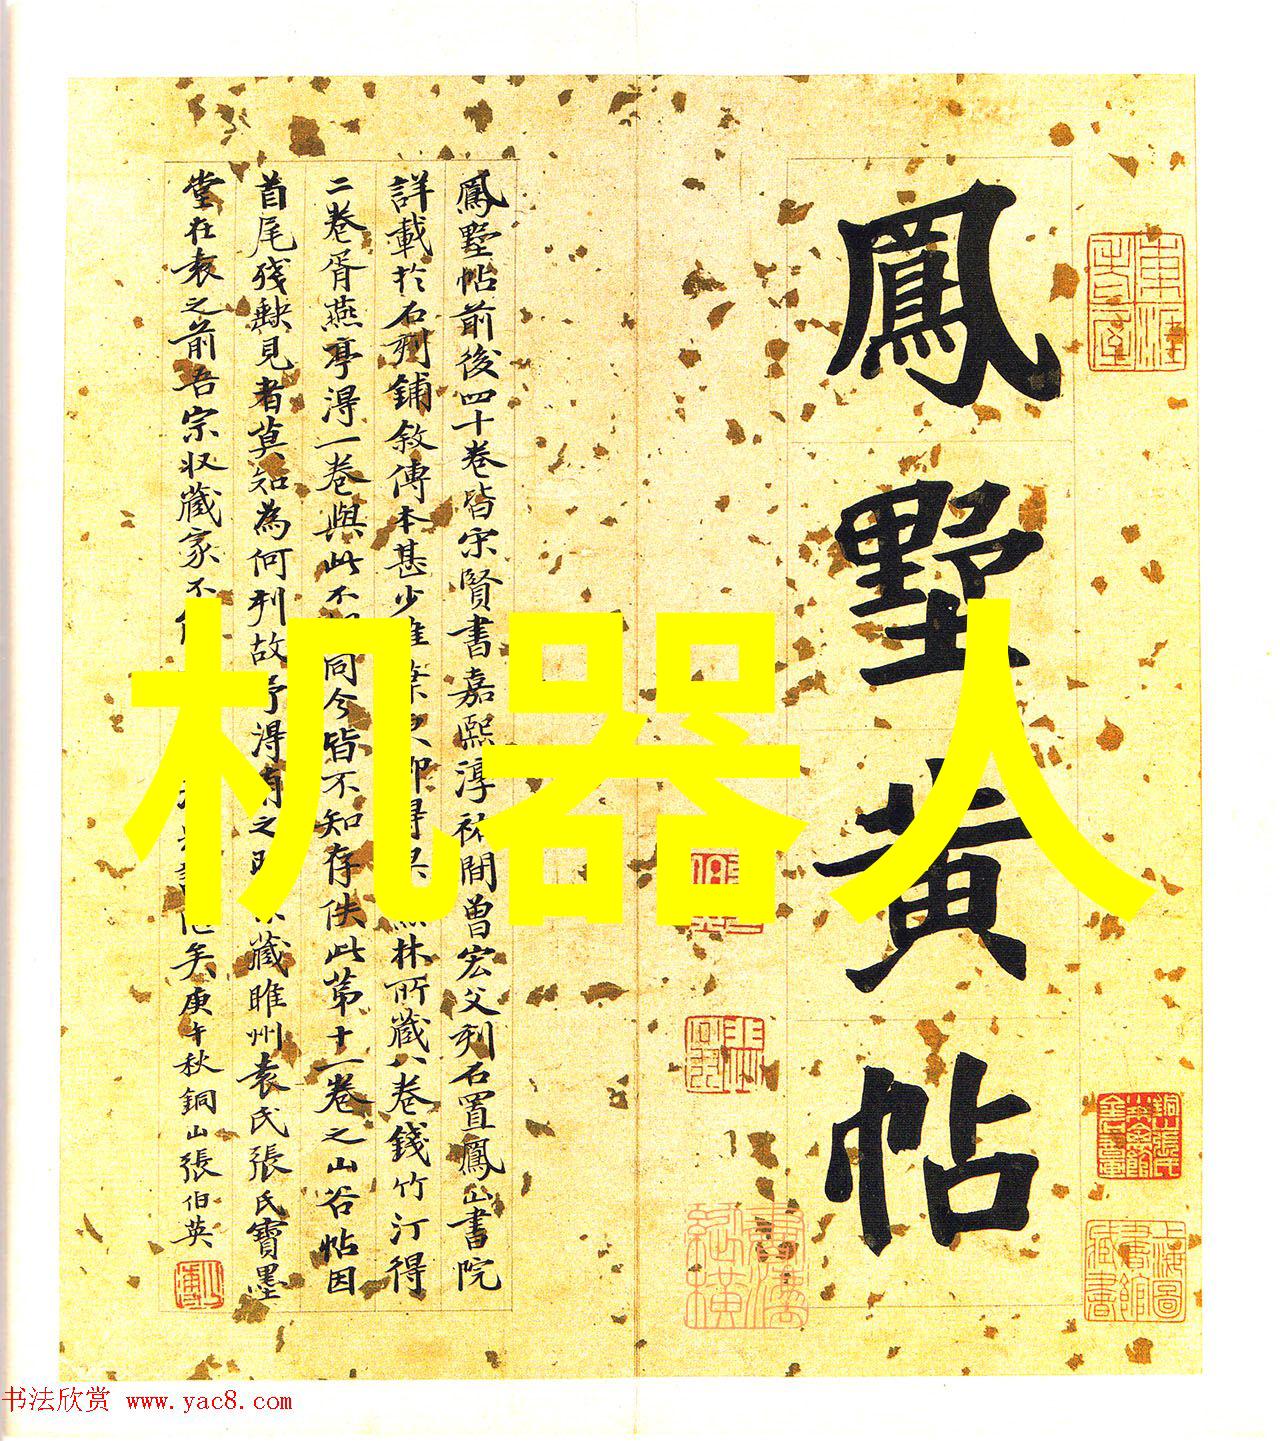 鳳墅黃帖
鳳墅帖前後四十卷皆宋賢書嘉熙淳祐間曾宏父刻石置鳳山書院
詳載於石刻鋪敘傳本甚少惟葉得林所藏八卷錢竹汀得
二卷胥燕亭得一卷與此不同今皆不知存佚此第十一卷之山谷帖因
首尾殘缺見者莫知為何刻故予得有之藏睢州袁氏張氏寶墨
堂在袁之前吾宗収藏家不矣庚午秋銅山張伯英
机器人
上海圖書館藏書
书法欣赏 www.yac8.com